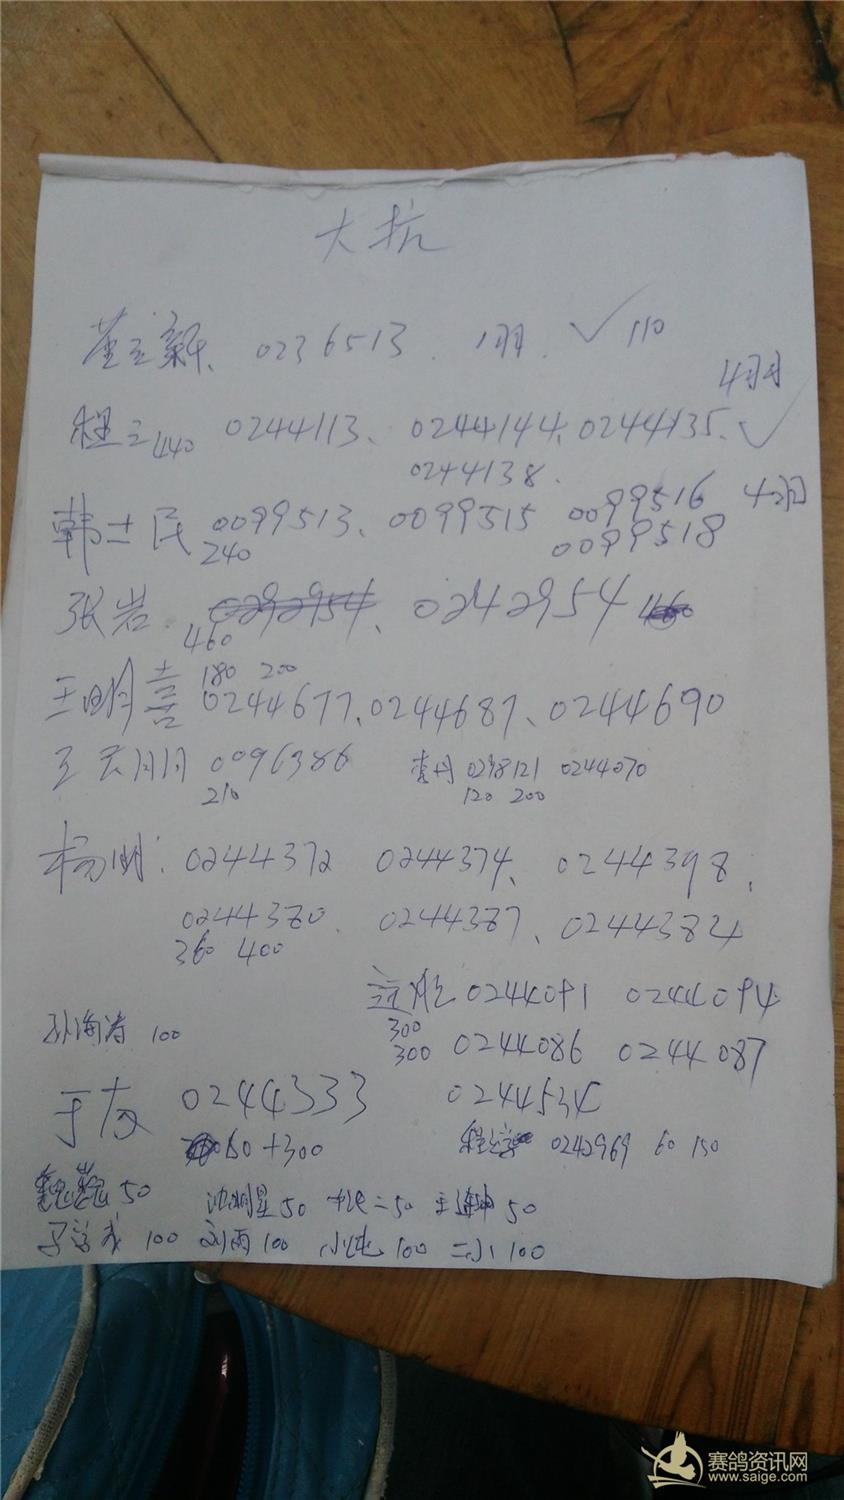 大抗
董立新、0236513. 1羽. ✓ 110
4羽
程立 440 0244113、0244144、0244135、✓
0244138.
韩士民 0099513、0099515 0099516 4羽
240 0099518
张岩 0242954
460
王明喜 180 200
0244677、0244687、0244690
王 0096386 李丹 0298121 0244070
210 120 200
杨明: 0244372 0244374、0244398、
0244380、0244387、0244384
360 400
0244091 0244094
孙海涛 100 300
300 0244086 0244087
于友 0244333 0244534
60+300 0242969 60 150
50 沈明星 50 二 50 王 50
100 刘雨 100 小 100 二小 100
赛鸽资讯网
www.saige.com